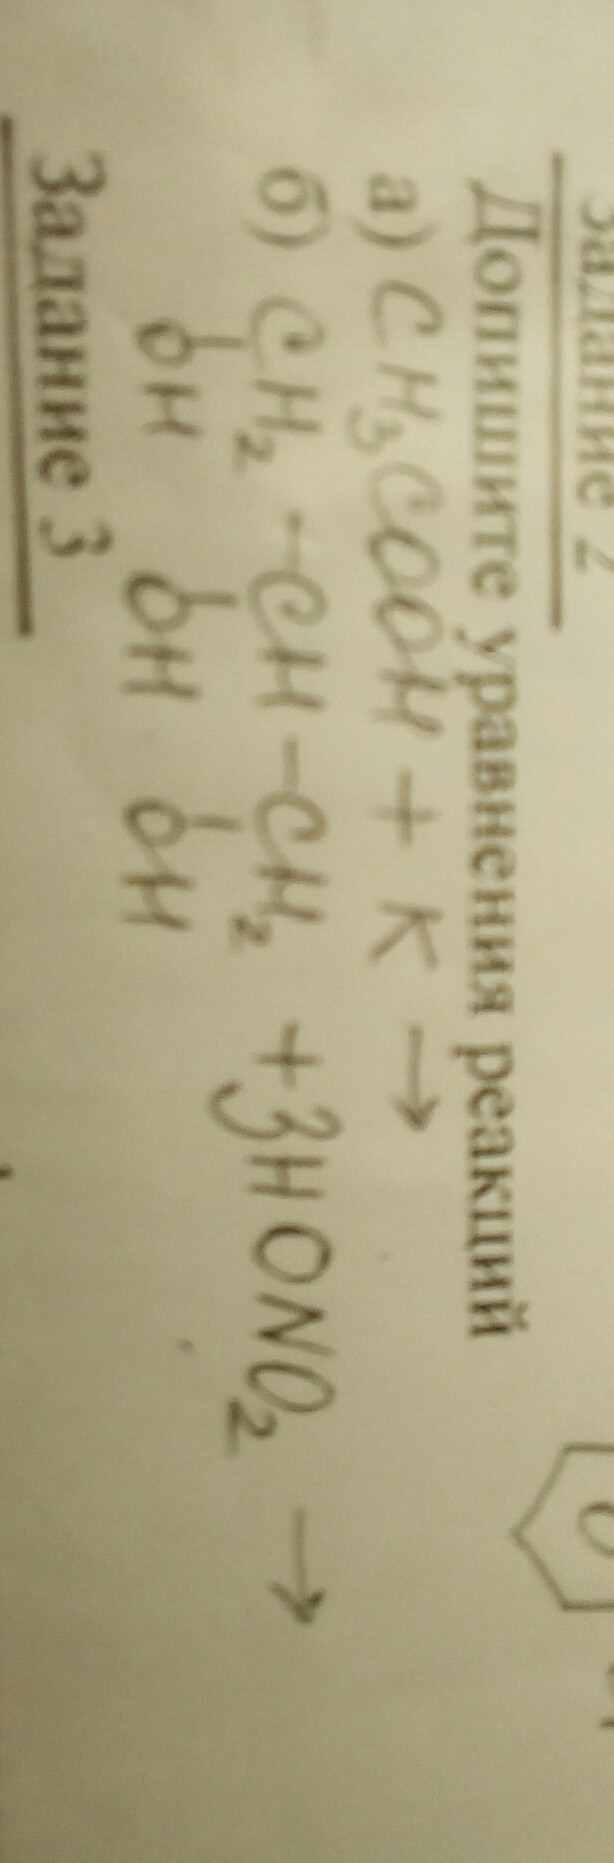 Задание 2
Допишите уравнения реакций
а) CH₃COOH + K →
б) CH₂ - CH - CH₂ + 3HONO₂ →
OH OH OH
Задание 3